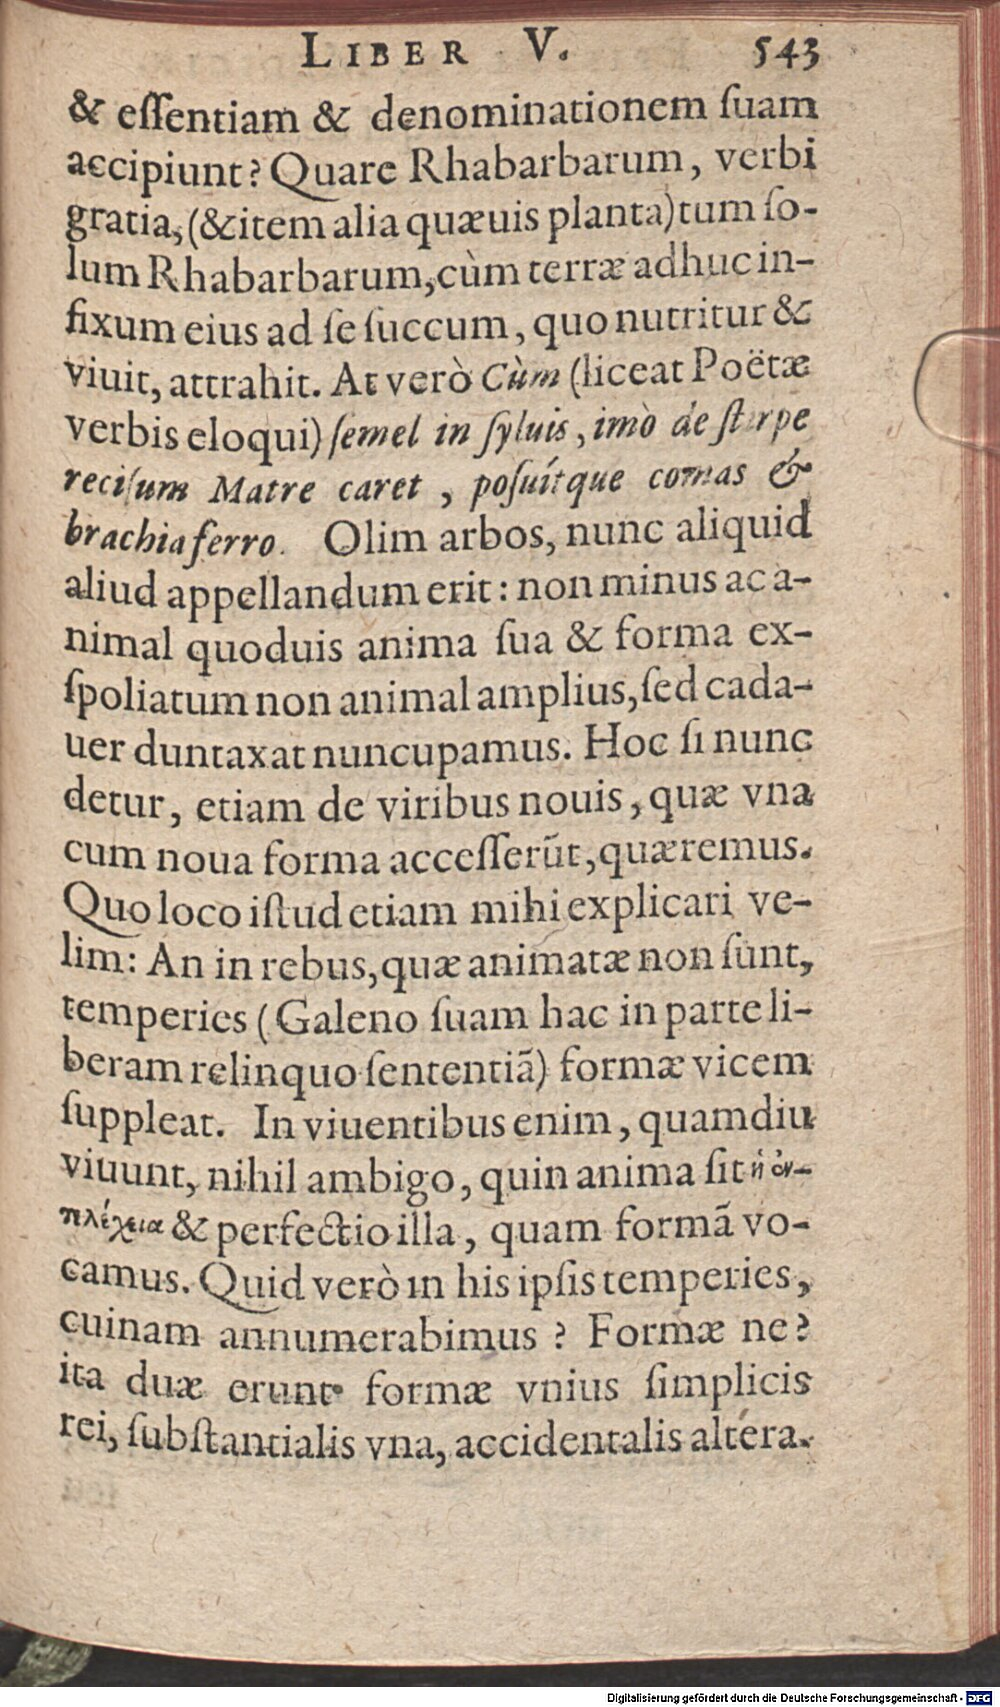 LIBER V. 543
& eſſentiam & denominationem ſuam
accipiunt? Quare Rhabarbarum, verbi
gratia, (& item alia quæuis planta) tum ſo-
lum Rhabarbarum, cùm terræ adhuc in-
fixum eius ad ſe ſuccum, quo nutritur &
viuit, attrahit. At verò Cùm (liceat Poëtæ
verbis eloqui) ſemel in ſyluis, imò de ſtirpe
reciſum Matre caret, poſuítque comas &
brachia ferro. Olim arbos, nunc aliquid
aliud appellandum erit: non minus ac a-
nimal quoduis anima ſua & forma ex-
ſpoliatum non animal amplius, ſed cada-
uer duntaxat nuncupamus. Hoc ſi nunc
detur, etiam de viribus nouis, quæ vna
cum noua forma acceſſerũt, quæremus.
Quo loco iſtud etiam mihi explicari ve-
lim: An in rebus, quæ animatæ non ſunt,
temperies (Galeno ſuam hac in parte li-
beram relinquo ſententiã) formæ vicem
ſuppleat. In viuentibus enim, quamdiu
viuunt, nihil ambigo, quin anima ſit ἡ ἐν-
πλέχεια & perfectio illa, quam formã vo-
camus. Quid verò in his ipſis temperies,
cuinam annumerabimus? Formæ ne?
ita duæ erunt formæ vnius ſimplicis
rei, ſubſtantialis vna, accidentalis altera.
Digitalisierung gefördert durch die Deutsche Forschungsgemeinschaft - DFG